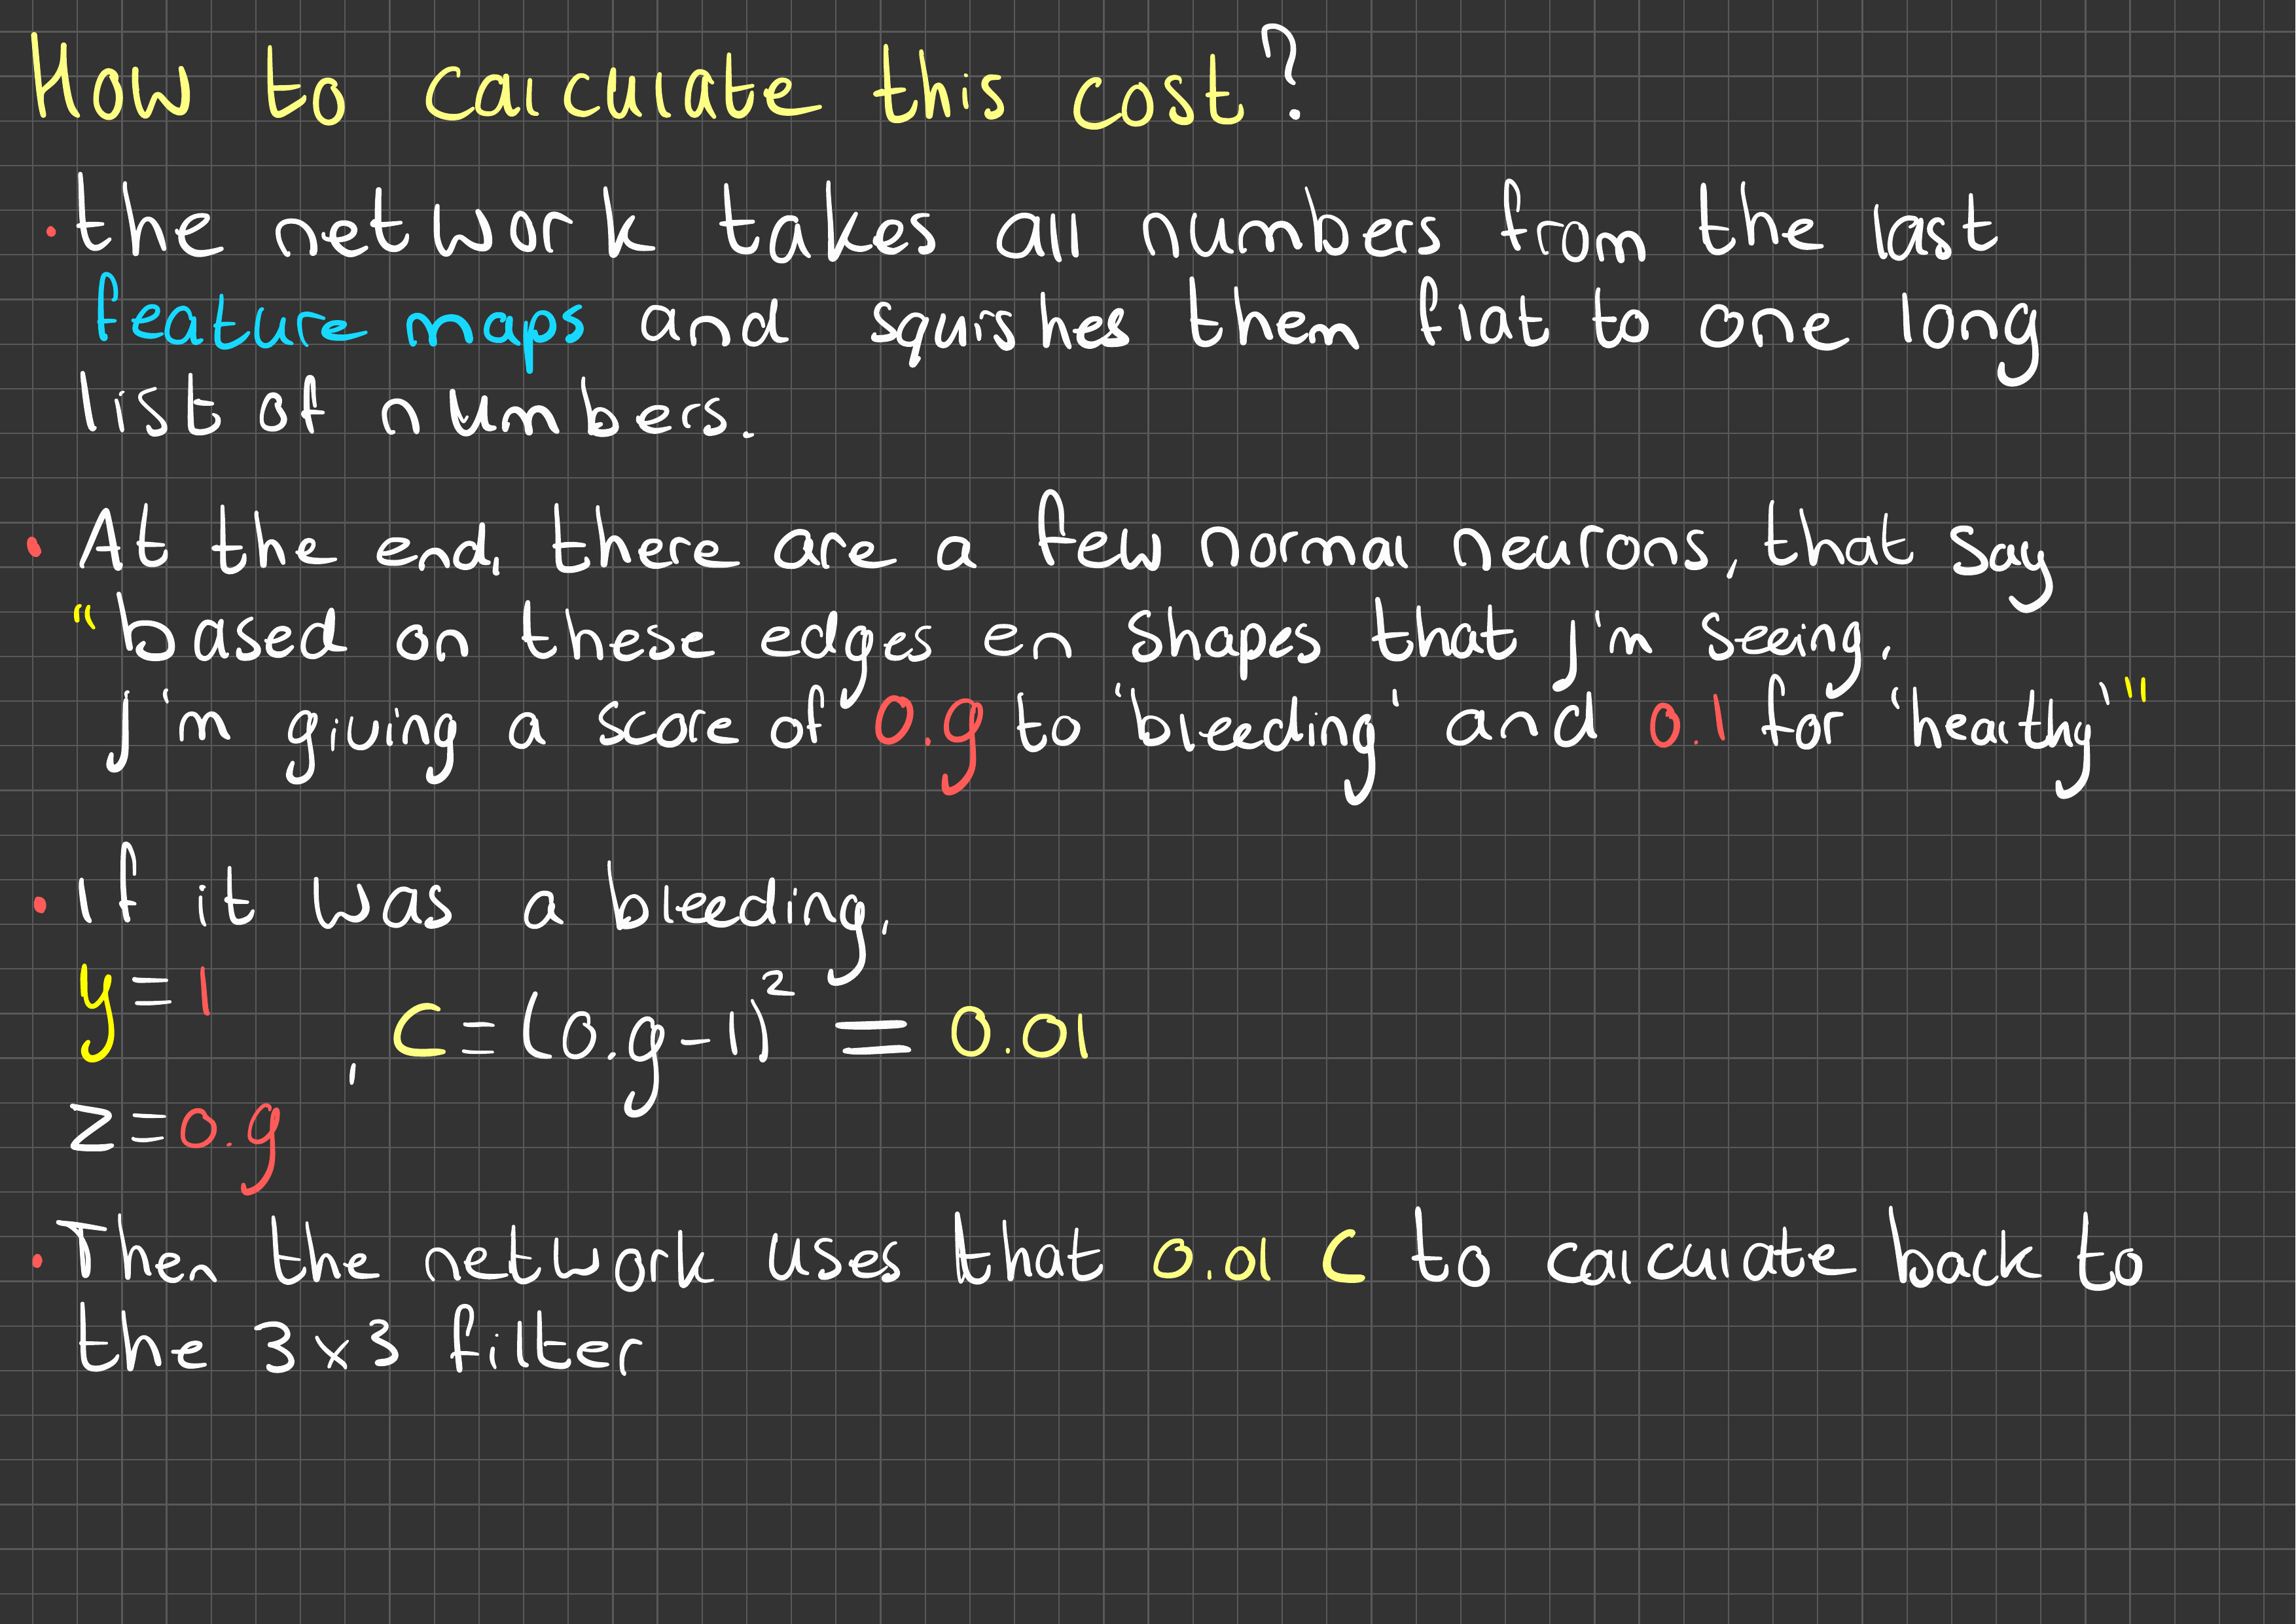 How to calculate this cost?
• the network takes all numbers from the last
feature maps and squishes them flat to one long
list of numbers.
• At the end, there are a few normal neurons, that say
"based on these edges en shapes that I'm seeing,
I'm giving a score of 0.9 to 'bleeding' and 0.1 for 'healthy'"
• If it was a bleeding,
y=1
, C=(0.9-1)² = 0.01
z=0.9
• Then the network uses that 0.01 C to calculate back to
the 3x3 filter